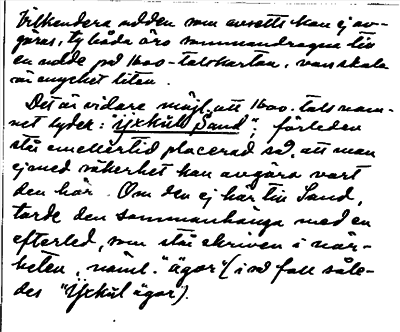 Vilkendera udden som avsetts kan ej av-
göras, ty båda äro sammandragna till
en udde på 1600-talskartan, vars skala
är mycket liten.
Det är vidare möjl. att 1600-talsnam-
net lyder: "Yxkull Sand"; förleden
står emellertid placerad så, att man
ej med säkerhet kan avgöra vart
den hör. Om den ej hör till Sand,
torde den sammanhänga med en
efterled, som står skriven i när-
heten, näml. "ägor" (i så fall såle-
des "Yxkul ägor").